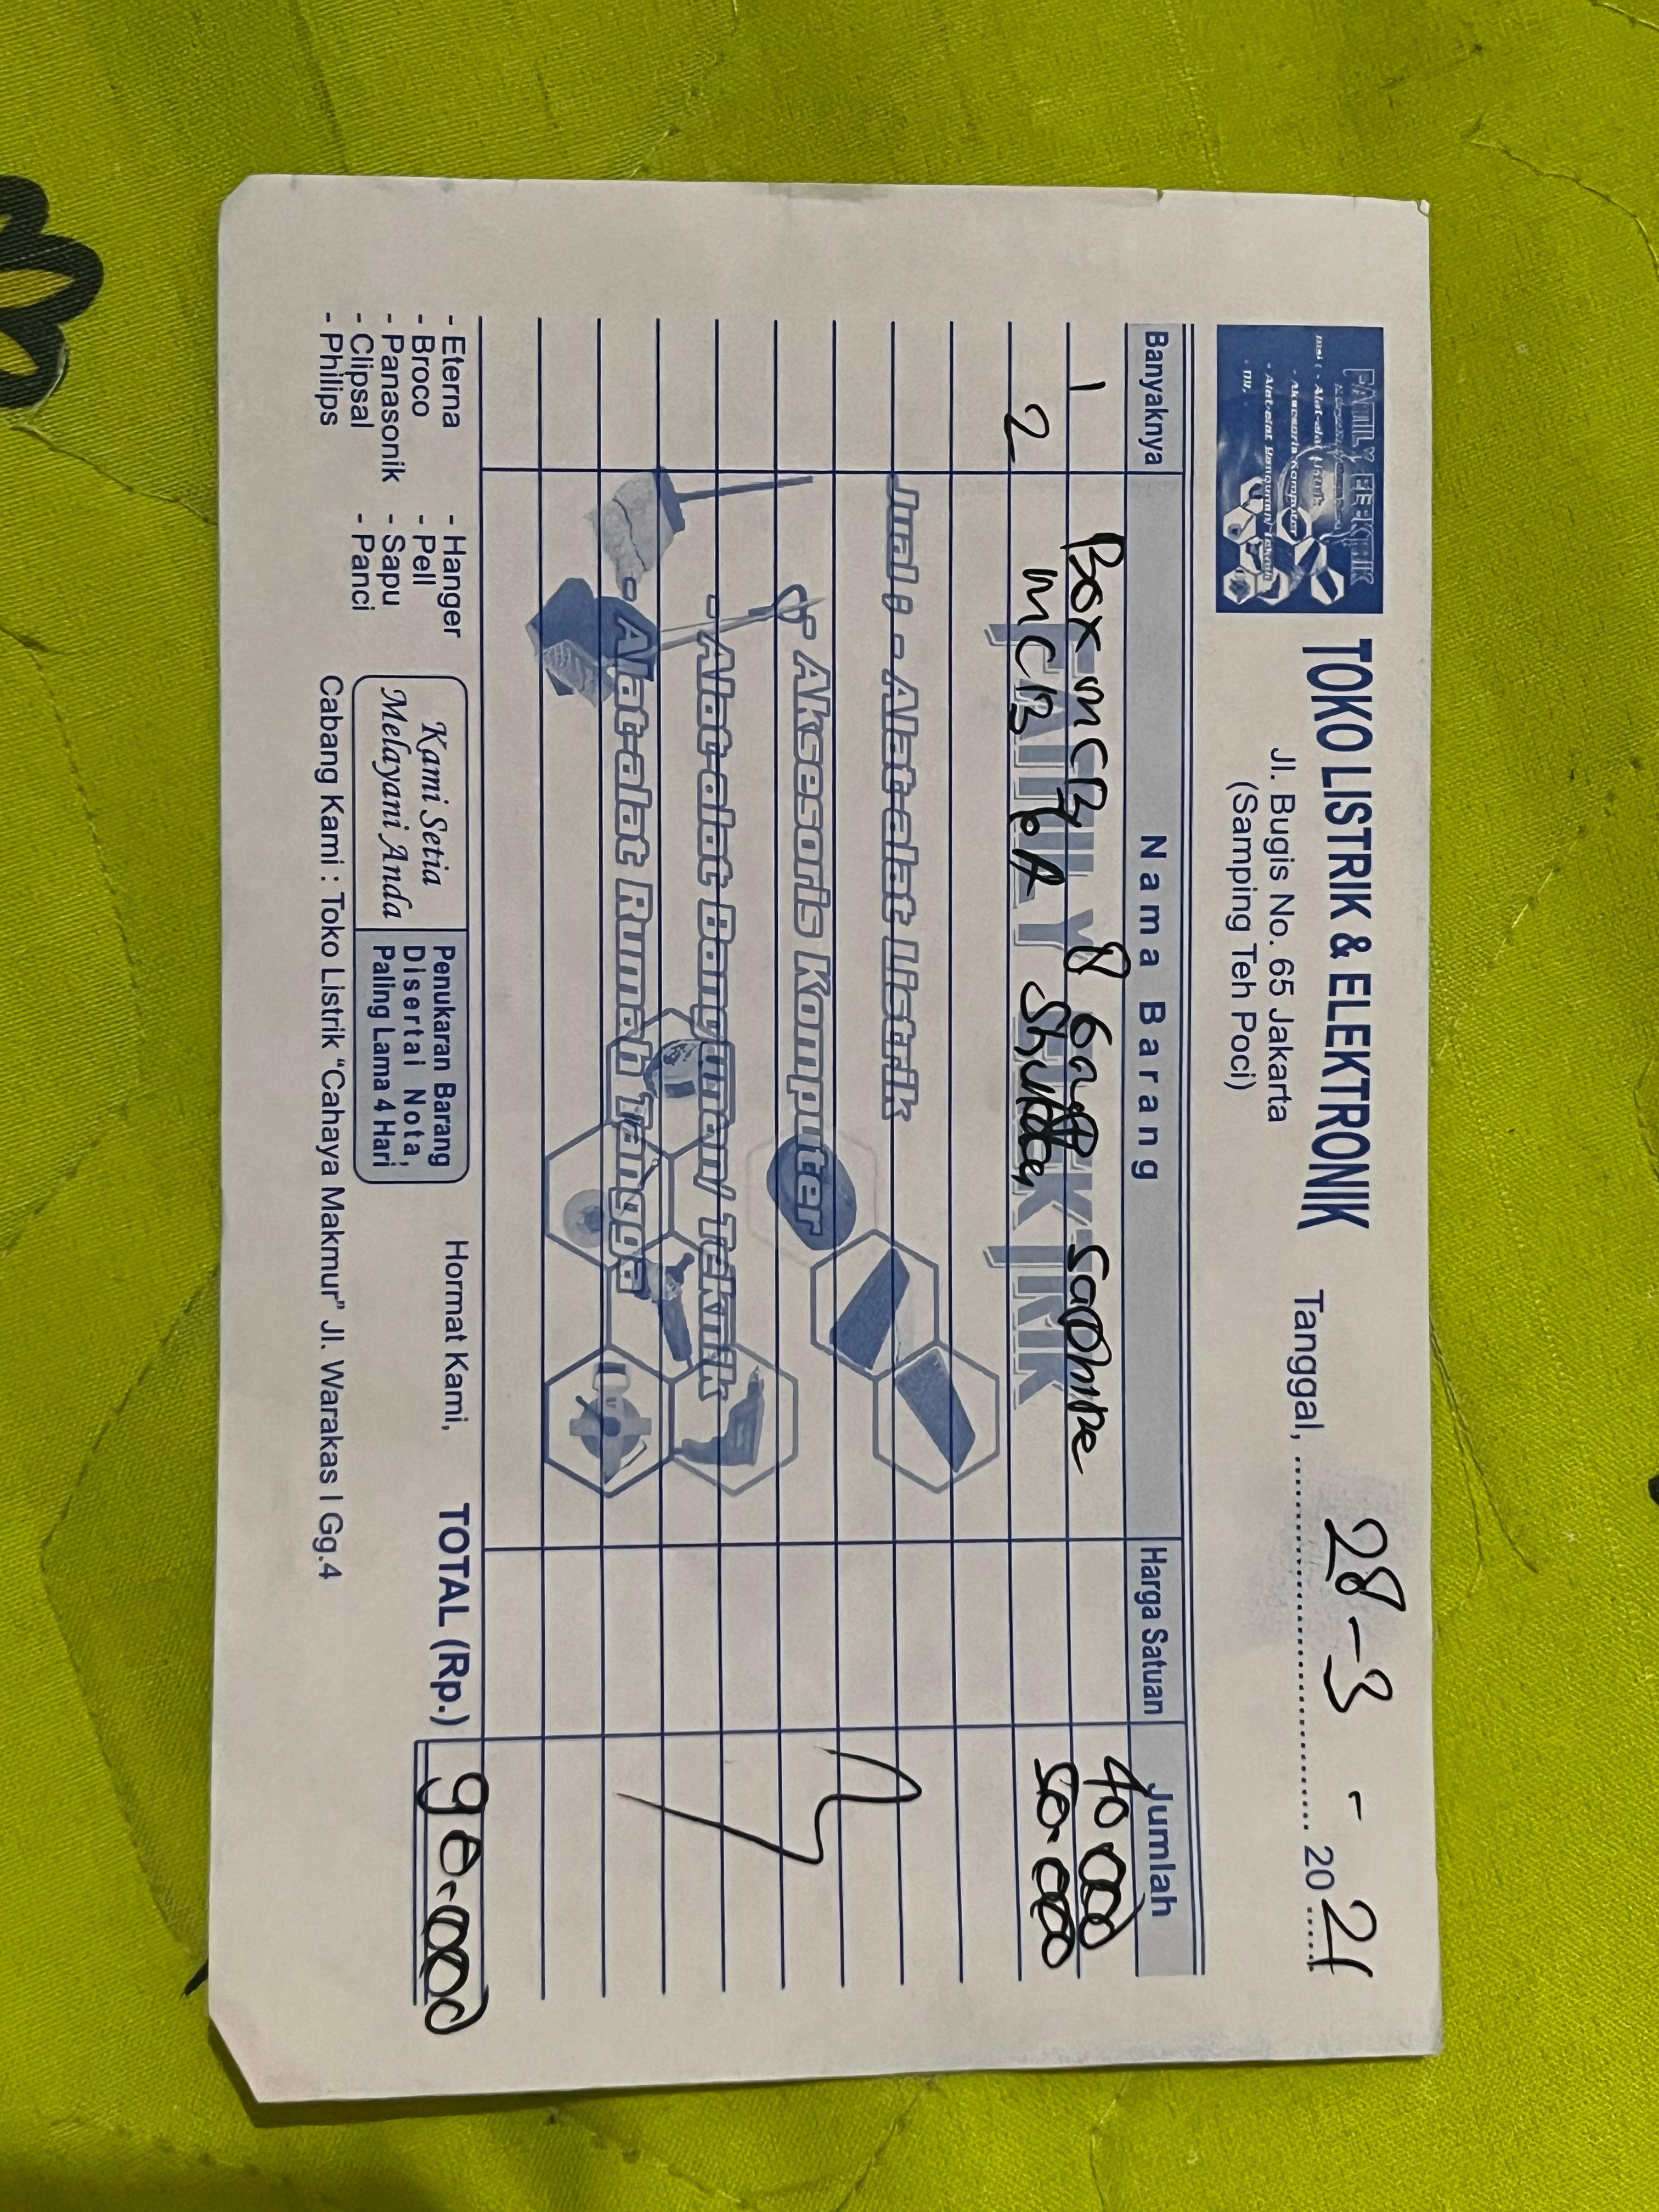 FAMILY ELEKTRIK
- Aksesoris Komputer
TOKO LISTRIK & ELEKTRONIK
Jl. Bugis No. 65 Jakarta
(Samping Teh Poci)
Tanggal, 28-3-2021
Banyaknya Nama Barang Harga Satuan Jumlah
1 Box MCB 8 40.000
2 MCB 50.000
FAMILY ELEKTRIK
Jual : - Alat-alat Listrik
- Aksesoris Komputer
- Alat-alat Bangunan/ Teknik
- Alat-alat Rumah Tangga
TOTAL (Rp.) 90.000
- Eterna - Hanger
- Broco - Pell
- Panasonik - Sapu
- Clipsal - Panci
- Philips
Kami Setia
Melayani Anda
Penukaran Barang
Disertai Nota,
Paling Lama 4 Hari
Hormat Kami,
Cabang Kami : Toko Listrik "Cahaya Makmur" Jl. Warakas I Gg.4